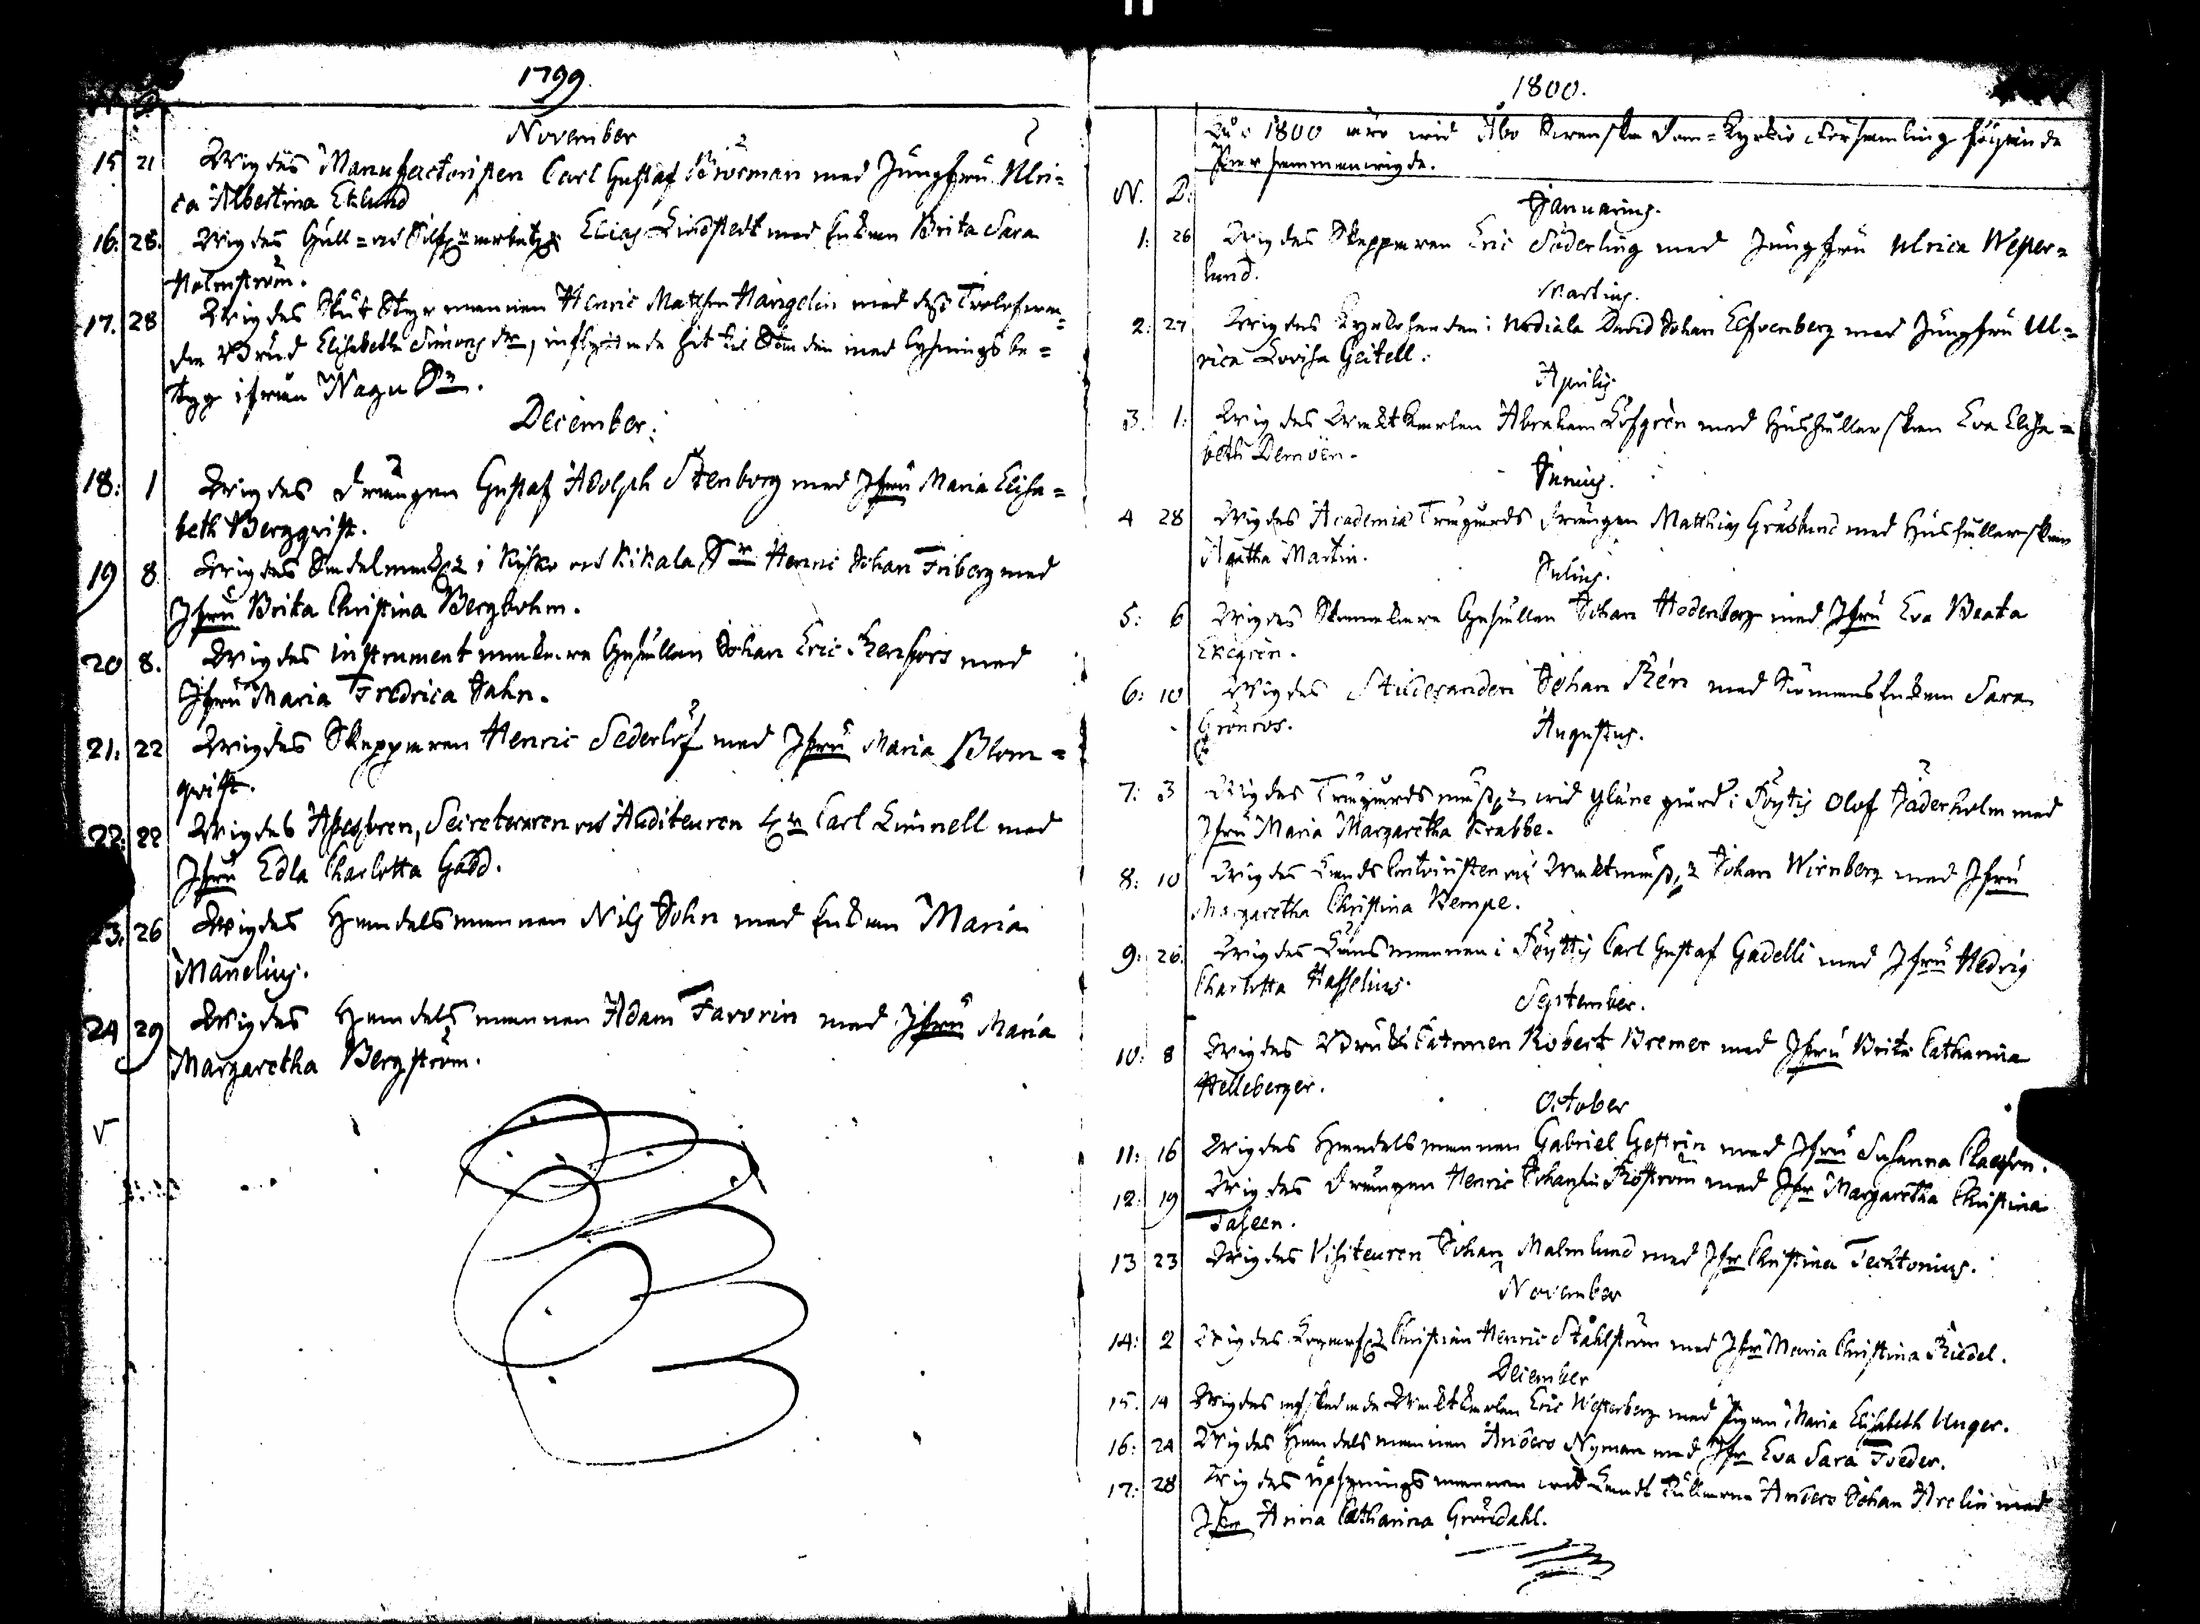 1799.
November
15 21 Wigdes Manufactoristen Carl Gustaf Broeman med Jungfru Ulri=
ca Albertina Eklund
16. 28. Wigdes Gull= och Elias Lindstedt med Enkan Brita Sara
Holmström.
17. 28 Wigdes Skut Styrmannen Henric Matthsson Hangelin med dess Trolofwa=
de Brud Elisabeth Simons dr, inflyttande hit til Staden med lysningsbe=
tyg ifrån Nagu Sn.
December:
18: 1 Wigdes Drängen Gustaf Adolph Stenborg med Jfru Maria Elisa=
beth Bergqvist.
19 8 Wigdes i Kisko och Kikala Sr Henric Johan Friberg med
Jfru Brita Christina Bergbohm.
20 8. Wigdes instrument makare Gesällen Johan Eric Renfors med
Jfru Maria Fredrica Jahn.
21: 22 Wigdes Skepparen Henric Sederlöf med Jfru Maria Blom=
qwist.
22: 22 Wigdes Secreteraren och Auditeuren Hr Carl Linnell med
Jfru Edla Charlotta Gadd.
23. 26 Wigdes Handelsmannen Nils John med Enkan Maria
Manelius.
24 29 Wigdes Handelsmannen Adam Favorin med Jfru Maria
Margaretha Bergström.
1800.
1800 äro wid Åbo Swenska Dom=Kyrkio Församling följande
Par sammanwigde.
N. D:
Januarius.
1: 26 Wigdes Skepparen Eric Söderling med Jungfru Ulrica Wester=
lund.
Martius.
2: 27 Wigdes i David Johan Elfvenberg med Jungfru Ul=
rica Lovisa Geitell.
Aprilis
3. 1: Wigdes Wacktkarlen Abraham Löfgrén med Hushållerskan Eva Elisa=
beth Demoen.
Junius.
4 28 Wigdes Academiæ Trägårds Drängen Matthias Gräslund med Hushållerskan
Agatha Martin.
Julius.
5: 6 Wigdes Gesällen Johan Hedenberg med Jfru Eva Beata
Ekegren.
6: 10 Wigdes Studeranden Johan Rén med Enkan Sara
Grönroos.
Augustus.
7: 3 Wigdes Trägårdsmäst:r wid gård i Pöytis Olof Jäderholm med
Jfru Maria Margaretha Krabbe.
8: 10 Wigdes Johan Wirnberg med Jfru
Margaretha Christina Kempe.
9: 26. Wigdes Länsmannen i Pöyttis Carl Gustaf Gadelli med Jfru Hedvig
Charlotta Hasselius.
September.
10: 8 Wigdes Bruks Patronen Robert Bremer med Jfru Brita Catharina
Helleberger.
October
11: 16 Wigdes Handelsmannen Gabriel Gestrin med Jfru Susanna Claesson.
12: 19 Wigdes Drängen Henric Johansson Roström med Jfr Margaretha Christina
13 23 Wigdes Visiteuren Johan Malmlund med Jfr Christina Tecktonius.
November
14: 2 Wigdes Christian Henric Ståhlström med Jfr Maria Christina Riedel.
December
15. 14 Wigdes Wacktkarlen Eric Westerberg med Pigan Maria Elisabeth Unger.
16: 24 Wigdes Handelsmannen Anders Nyman med Jfr Eva Sara
17: 28 Wigdes Upsyningsmannen wid Landt Tullarne Anders Johan Arelin med
Jfr Anna Catharina Gröndahl.